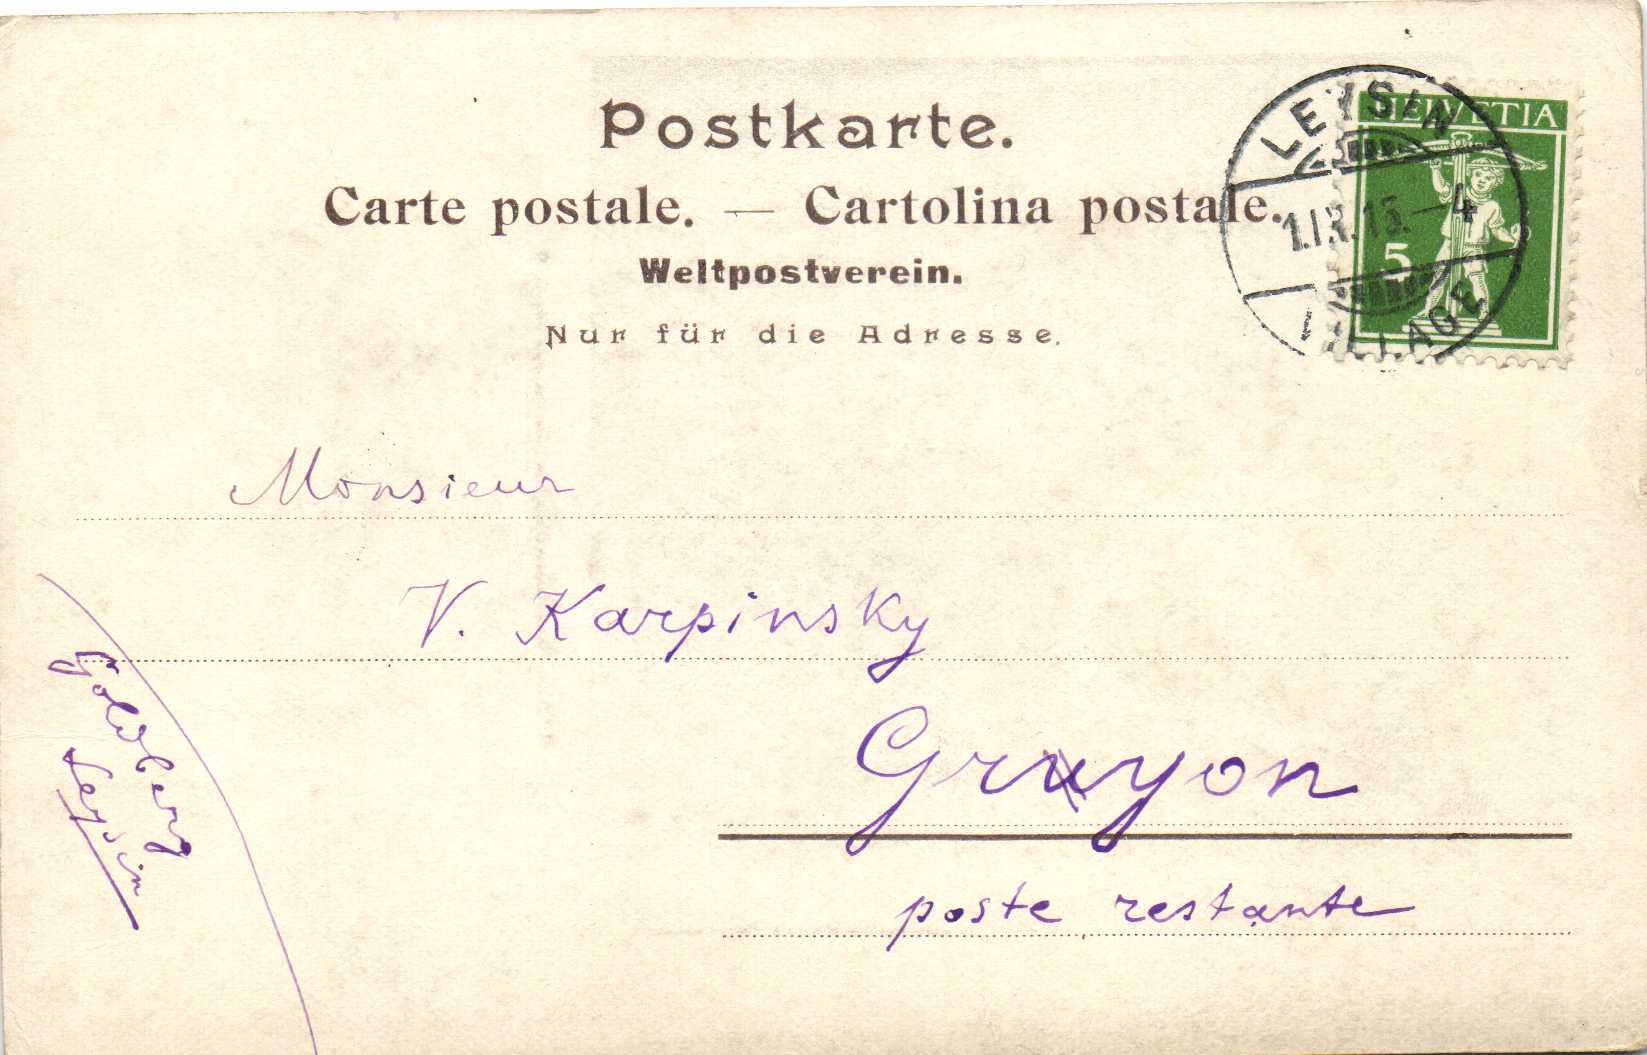 Postkarte.
Carte postale. — Cartolina postale.
Weltpostverein.
Nur für die Adresse.
HELVETIA
5
LEYSIN
1.IX.15.–4
VILLAGE
Monsieur
V. Karpinsky
Gryon
poste restante
Goldberg
Leysin